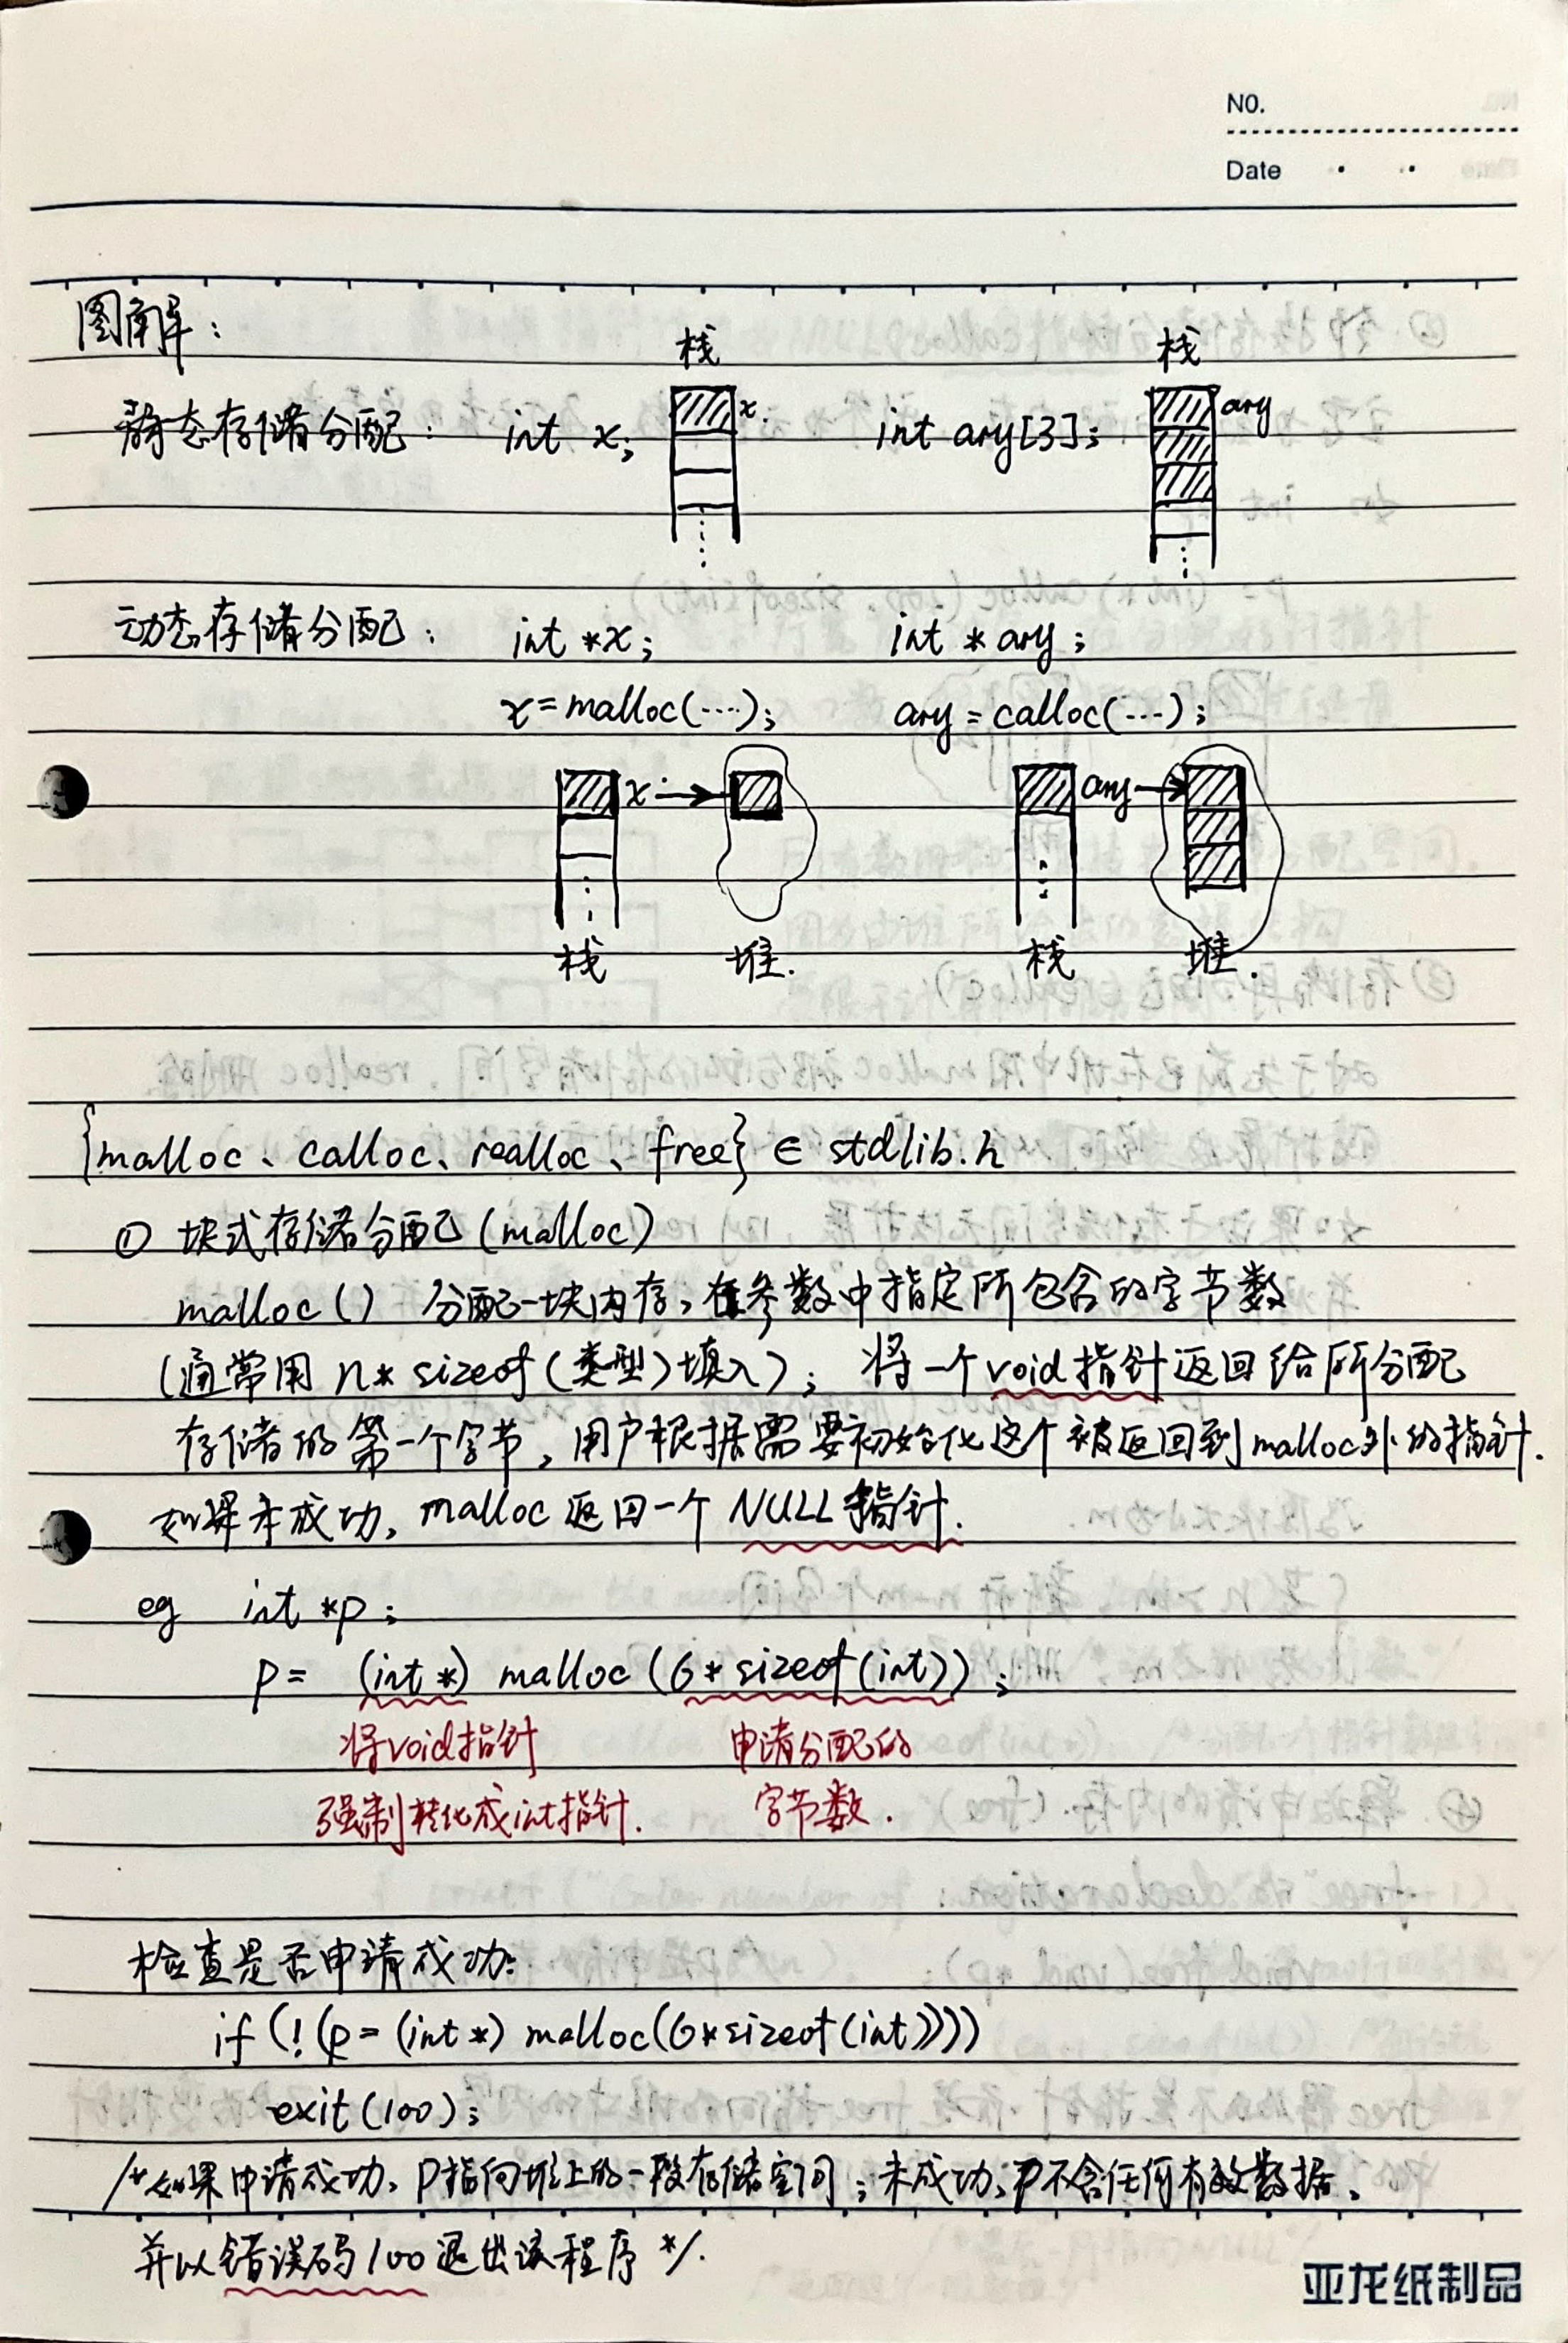 NO.
Date
图解：
栈 栈
静态存储分配： int x; x. int ary[3]; ary
动态存储分配： int *x; int * ary;
x=malloc(...); ary=calloc(...);
x ary
栈 堆. 栈 堆.
{malloc、calloc、realloc、free} ∈ stdlib.h
① 块式存储分配(malloc)
malloc() 分配一块内存，在参数中指定所包含的字节数
(通常用 n* sizeof(类型)填入)； 将一个void指针返回给所分配
存储的第一个字节，用户根据需要初始化这个被返回到malloc外的指针.
如果未成功，malloc返回一个NULL指针.
eg int *p;
p= (int *) malloc (6* sizeof(int));
将void指针 申请分配的
强制转化成int指针. 字节数.
检查是否申请成功:
if (!(p= (int *) malloc(6*sizeof(int))))
exit(100);
/*如果申请成功，P指向堆上的一段存储空间；未成功，P不含任何有效数据，
并以错误码100退出该程序 */.
亚龙纸制品